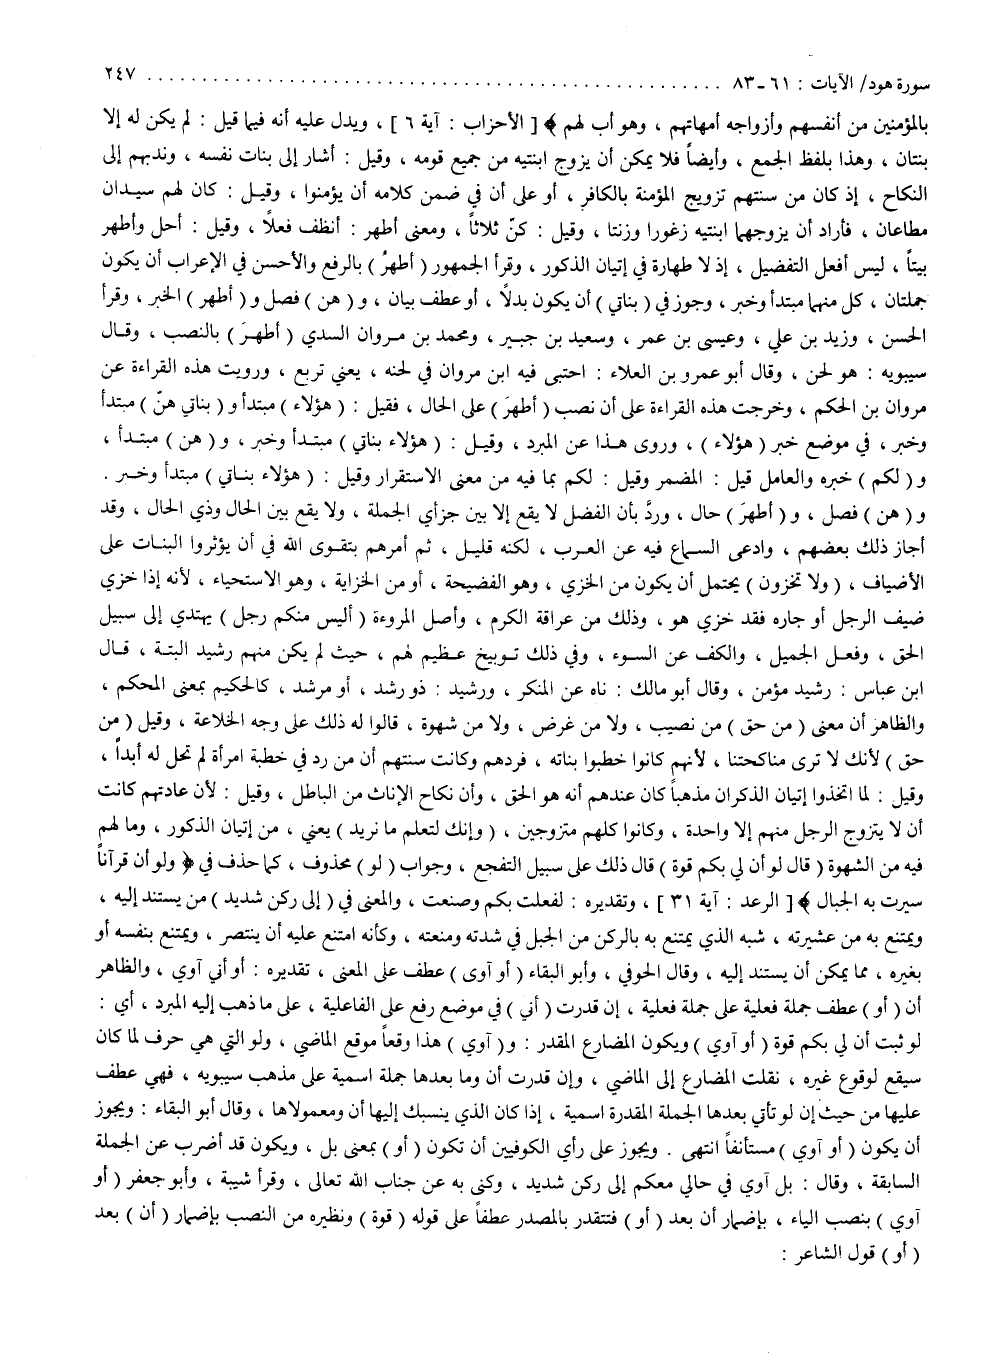 سورة هود/ الآيات : ٦١ ـ ٨٣ . . . . . . . . . . . . . . . . . . . . . . . . . . . . . . . . . . . . . . . . ٢٤٧
بالمؤمنين من أنفسهم وأزواجه أمهاتهم ، وهو أب لهم ﴾ [ الأحزاب : آية ٦ ] ، ويدل عليه أنه فيما قيل : لم يكن له إلا
بنتان ، وهذا بلفظ الجمع ، وأيضاً فلا يمكن أن يزوج ابنتيه من جميع قومه ، وقيل : أشار إلى بنات نفسه ، وندبهم إلى
النكاح ، إذ كان من سنتهم تزويج المؤمنة بالكافر ، أو على أن في ضمن كلامه أن يؤمنوا ، وقيل : كان لهم سيدان
مطاعان ، فأراد أن يزوجهما ابنتيه زغورا وزنتا ، وقيل : كنّ ثلاثاً ، ومعنى أطهر : أنظف فعلاً ، وقيل : أحل وأطهر
بيتاً ، ليس أفعل التفضيل ، إذ لا طهارة في إتيان الذكور ، وقرأ الجمهور ( أطهرُ ) بالرفع والأحسن في الإعراب أن يكون
جملتان ، كل منهما مبتدأ وخبر ، وجوز في ( بناتي ) أن يكون بدلاً ، أو عطف بيان ، و ( هن ) فصل و ( أطهر ) الخبر ، وقرأ
الحسن ، وزيد بن علي ، وعيسى بن عمر ، وسعيد بن جبير ، ومحمد بن مروان السدي ( أطهرَ ) بالنصب ، وقال
سيبويه : هو لحن ، وقال أبو عمرو بن العلاء : احتبى فيه ابن مروان في لحنه ، يعني تربع ، ورويت هذه القراءة عن
مروان بن الحكم ، وخرجت هذه القراءة على أن نصب ( أطهرَ ) على الحال ، فقيل : ( هؤلاء ) مبتدأ و ( بناتي هنّ ) مبتدأ
وخبر ، في موضع خبر ( هؤلاء ) ، وروى هذا عن المبرد ، وقيل : ( هؤلاء بناتي ) مبتدأ وخبر ، و ( هن ) مبتدأ ،
و ( لكم ) خبره والعامل قيل : المضمر وقيل : لكم بما فيه من معنى الاستقرار وقيل : ( هؤلاء بناتي ) مبتدأ وخبر .
و ( هن ) فصل ، و ( أطهرَ ) حال ، وردَّ بأن الفضل لا يقع إلا بين جزأي الجملة ، ولا يقع بين الحال وذي الحال ، وقد
أجاز ذلك بعضهم ، وادعى السماع فيه عن العرب ، لكنه قليل ، ثم أمرهم بتقوى الله في أن يؤثروا البنات على
الأضياف ، ( ولا تخزون ) يحتمل أن يكون من الخزي ، وهو الفضيحة ، أو من الخزاية ، وهو الاستحياء ، لأنه إذا خزي
ضيف الرجل أو جاره فقد خزي هو ، وذلك من عراقة الكرم ، وأصل المروءة ( أليس منكم رجل ) يهتدي إلى سبيل
الحق ، وفعل الجميل ، والكف عن السوء ، وفي ذلك توبيخ عظيم لهم ، حيث لم يكن منهم رشيد البتة ، قال
ابن عباس : رشيد مؤمن ، وقال أبو مالك : ناه عن المنكر ، ورشيد : ذو رشد ، أو مرشد ، كالحكيم بمعنى المحكم ،
والظاهر أن معنى ( من حق ) من نصيب ، ولا من غرض ، ولا من شهوة ، قالوا له ذلك على وجه الخلاعة ، وقيل ( من
حق ) لأنك لا ترى مناكحتنا ، لأنهم كانوا خطبوا بناته ، فردهم وكانت سنتهم أن من رد في خطبة امرأة لم تحل له أبداً ،
وقيل : لما اتخذوا إتيان الذكران مذهباً كان عندهم أنه هو الحق ، وأن نكاح الإناث من الباطل ، وقيل : لأن عادتهم كانت
أن لا يتزوج الرجل منهم إلا واحدة ، وكانوا كلهم متزوجين ، ( وإنك لتعلم ما نريد ) يعني ، من إتيان الذكور ، وما لهم
فيه من الشهوة ( قال لو أن لي بكم قوة ) قال ذلك على سبيل التفجع ، وجواب ( لو ) محذوف ، كما حذف في ﴿ ولو أن قرآناً
سيرت به الجبال ﴾ [ الرعد : آية ٣١ ] ، وتقديره : لفعلت بكم وصنعت ، والمعنى في ( إلى ركن شديد ) من يستند إليه ،
ويمتنع به من عشيرته ، شبه الذي يمتنع به بالركن من الجبل في شدته ومنعته ، وكأنه امتنع عليه أن ينتصر ، ويمتنع بنفسه أو
بغيره ، مما يمكن أن يستند إليه ، وقال الحوفي ، وأبو البقاء ( أو آوى ) عطف على المعنى ، تقديره : أو أني آوي ، والظاهر
أن ( أو ) عطف جملة فعلية على جملة فعلية ، إن قدرت ( أني ) في موضع رفع على الفاعلية ، على ما ذهب إليه المبرد ، أي :
لو ثبت أن لي بكم قوة ( أو آوي ) ويكون المضارع المقدر : و ( آوي ) هذا وقعاً موقع الماضي ، ولو التي هي حرف لما كان
سيقع لوقوع غيره ، نقلت المضارع إلى الماضي ، وإن قدرت أن وما بعدها جملة اسمية على مذهب سيبويه ، فهي عطف
عليها من حيث إن لو تأتي بعدها الجملة المقدرة اسمية ، إذا كان الذي ينسبك إليها أن ومعمولاها ، وقال أبو البقاء : ويجوز
أن يكون ( أو آوي ) مستأنفاً انتهى . ويجوز على رأي الكوفيين أن تكون ( أو ) بمعنى بل ، ويكون قد أضرب عن الجملة
السابقة ، وقال : بل آوي في حالي معكم إلى ركن شديد ، وكنى به عن جناب الله تعالى ، وقرأ شيبة ، وأبو جعفر ( أو
آوي ) بنصب الياء ، بإضمار أن بعد ( أو ) فتتقدر بالمصدر عطفاً على قوله ( قوة ) ونظيره من النصب بإضمار ( أن ) بعد
( أو ) قول الشاعر :